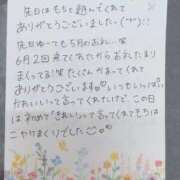 先日はもちと遊んでくれて
ありがとうございました(˘▽˘)!!
先日ゆーても5月のおれい。笑
6月2回来てくれたからおれいたまり
まくってる!笑 たくさん会ってくれて
ありがとうございます♡いつもいっぱい
かわいいって言ってくれてたけど、この日
はじめて「きれい」って言ってくれてもちは
こやけまくりでした◡̈♡